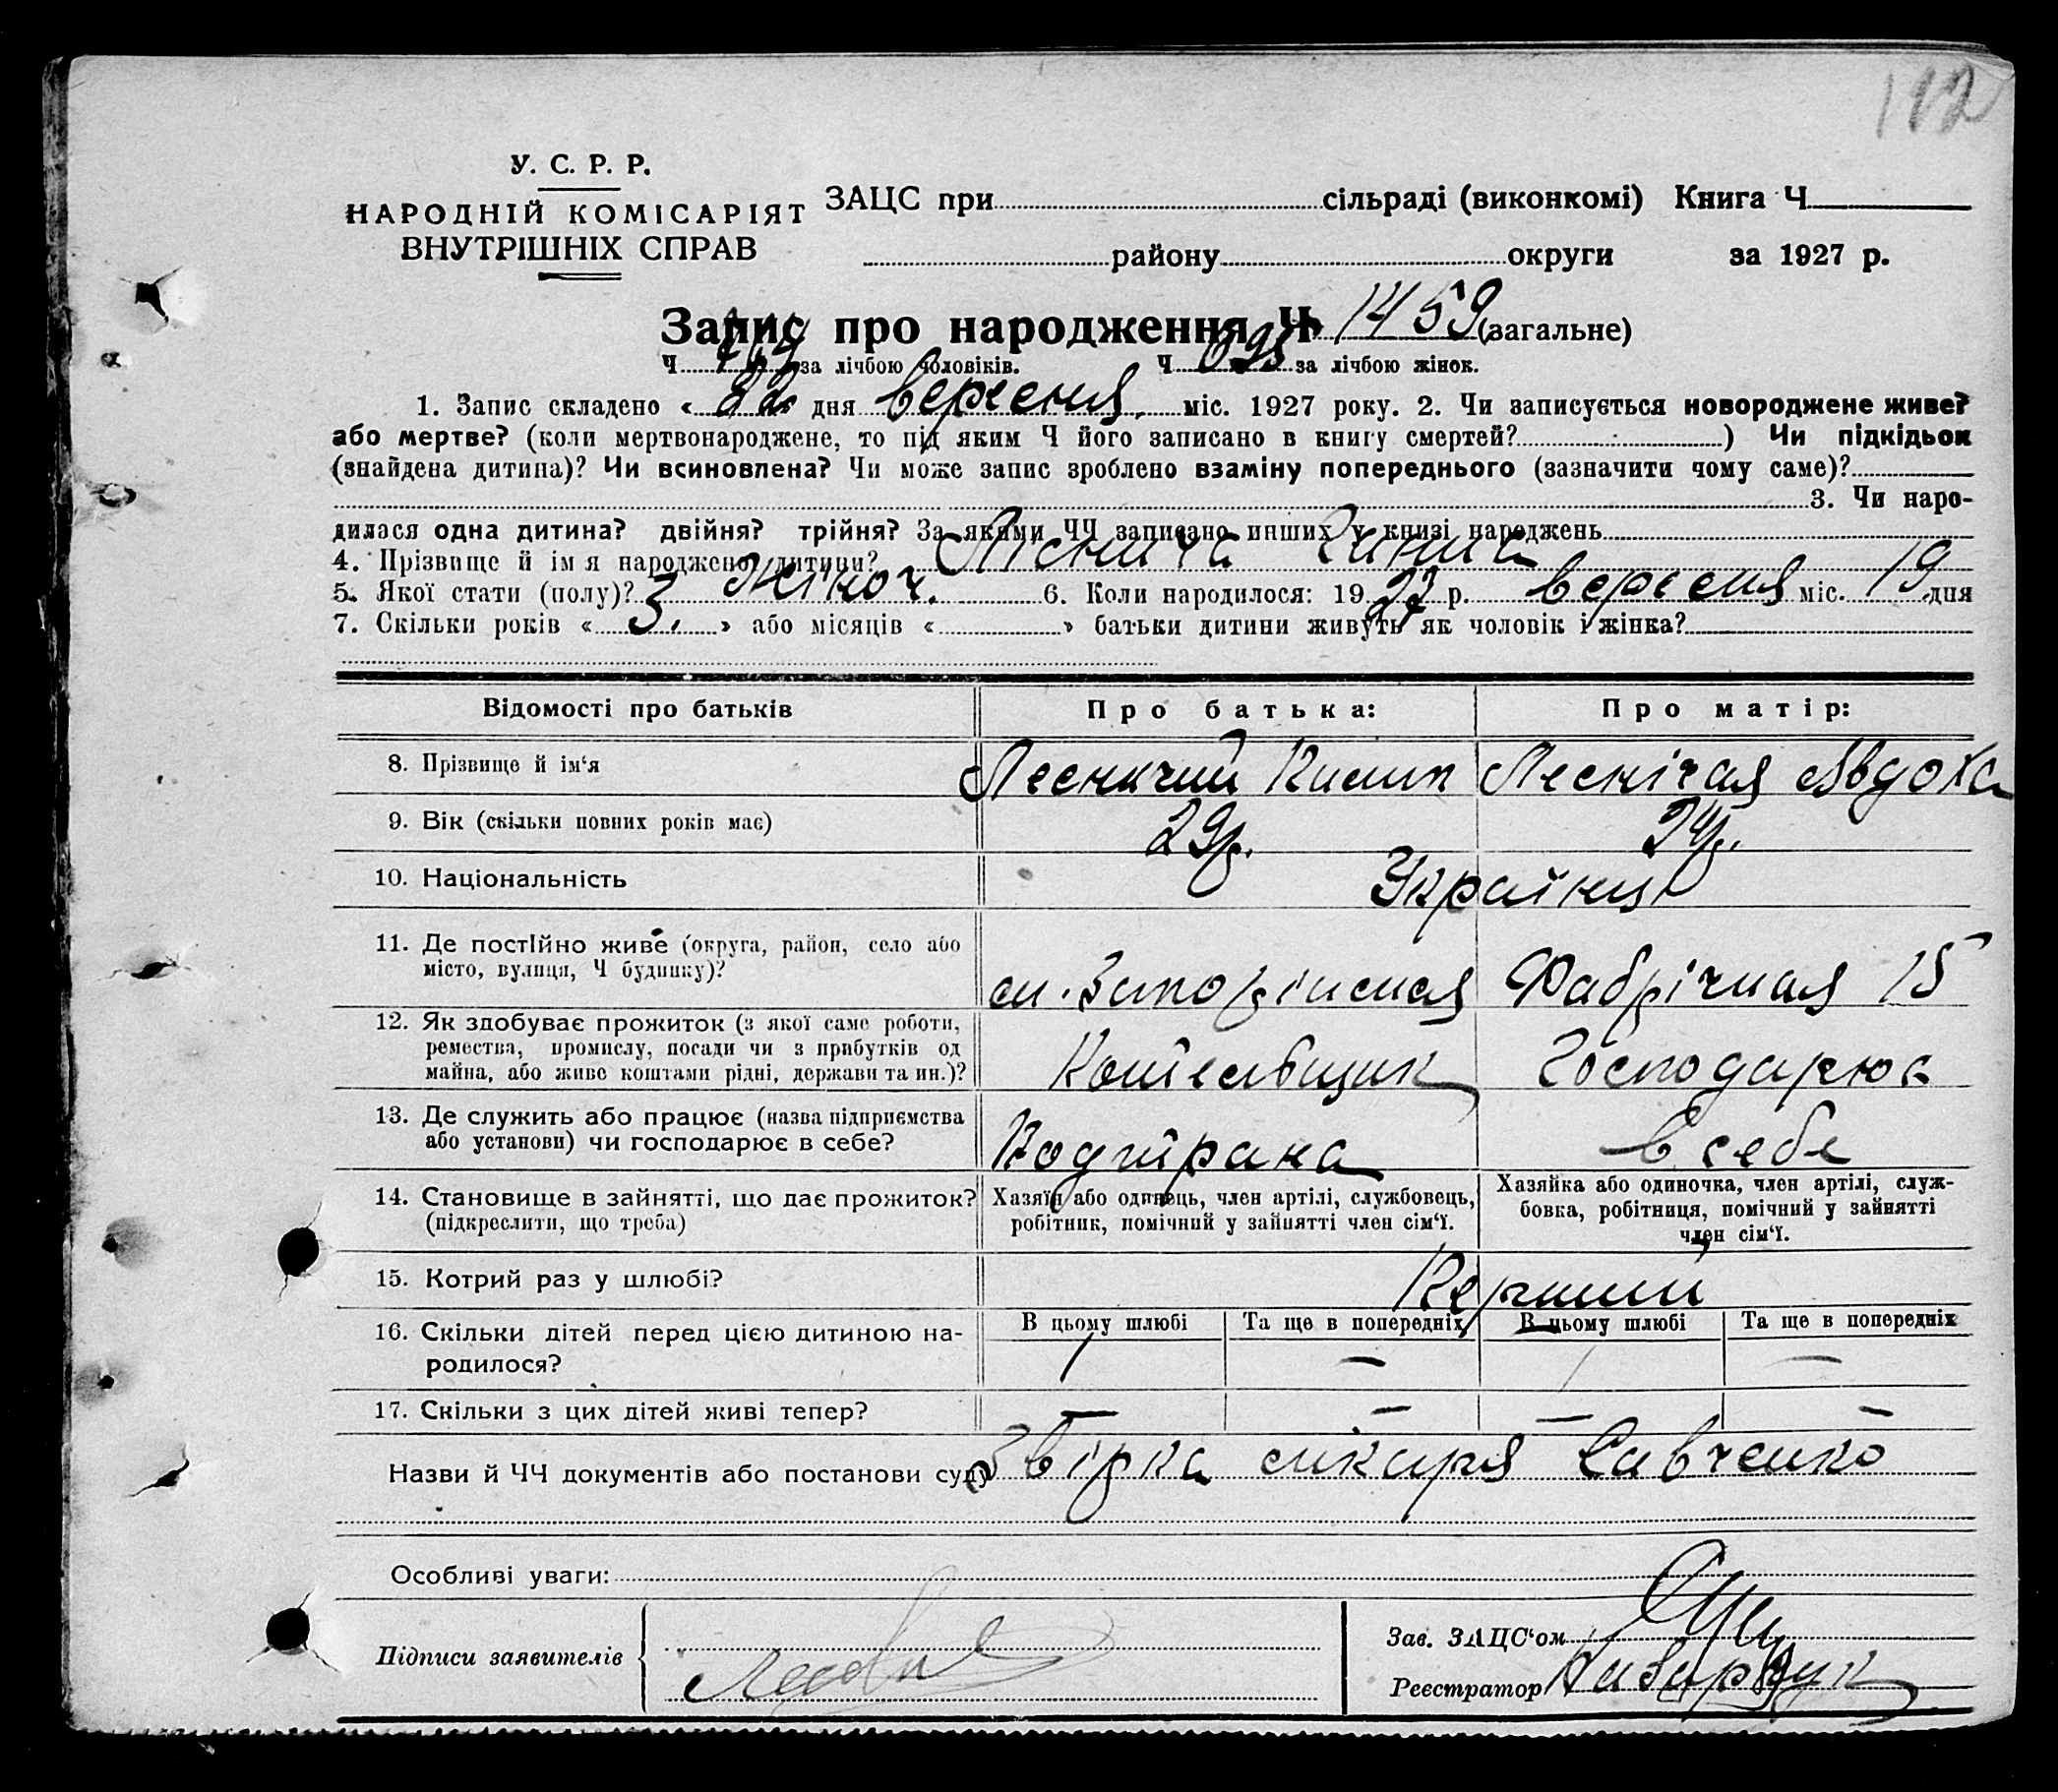 112
У. С. Р. Р.
НАРОДНІЙ КОМІСАРІЯТ
ВНУТРІШНІХ СПРАВ
ЗАЦС при сільраді (виконкомі) Книга Ч
району округи за 1927 р.
Запис про народження Ч 1459 (загальне)
Ч за лічбою чоловіків. Ч 695 за лічбою жінок.
1. Запис складено « 22 » дня вересня міс. 1927 року. 2. Чи записується новороджене живе?
або мертве? (коли мертвонароджене, то під яким Ч його записано в книгу смертей? ) Чи підкідьок
(знайдена дитина)? Чи всиновлена? Чи може запис зроблено взаміну попереднього (зазначити чому саме)?
3. Чи наро-
дилася одна дитина? двійня? трійня? За якими ЧЧ записано инших у книзі народжень
4. Прізвище й ім я народженої дитини?
5. Якої стати (полу)? жіноч. 6. Коли народилося: 19 27 р. вересня міс. 19 дня
7. Скільки років « 3. » або місяців « » батьки дитини живуть як чоловік і жінка?
Відомості про батьків
Про батька:
Про матір:
8. Прізвище й ім‘я
Леснічая Авдоха
9. Вік (скільки повних років має)
29р.
24р.
10. Національність
Українці
11. Де постійно живе (округа, район, село або
місто, вулиця, Ч будинку)?
Фабрічная 15
12. Як здобуває прожиток (з якої саме роботи,
ремества, промислу, посади чи з прибутків од
майна, або живе коштами рідні, держави та ин.)?
Котельщик
Господарює
13. Де служить або працює (назва підприємства
або установи) чи господарює в себе?
в себе
14. Становище в зайнятті, що дає прожиток?
(підкреслити, що треба)
Хазяїн або одинець, член артілі, службовець,
робітник, помічний у зайнятті член сім‘ї.
Хазяйка або одиночка, член артілі, служ-
бовка, робітниця, помічний у зайнятті
член сім‘ї.
15. Котрий раз у шлюбі?
Перший
16. Скільки дітей перед цією дитиною на-
родилося?
В цьому шлюбі
Та ще в попередніх
В цьому шлюбі
Та ще в попередніх
1 — 1 —
17. Скільки з цих дітей живі тепер?
— — — —
Назви й ЧЧ документів або постанови суду Звірка лікаря Савченко
Особливі уваги:
Підписи заявителів
Зав. ЗАЦС‘ом
Реєстратор